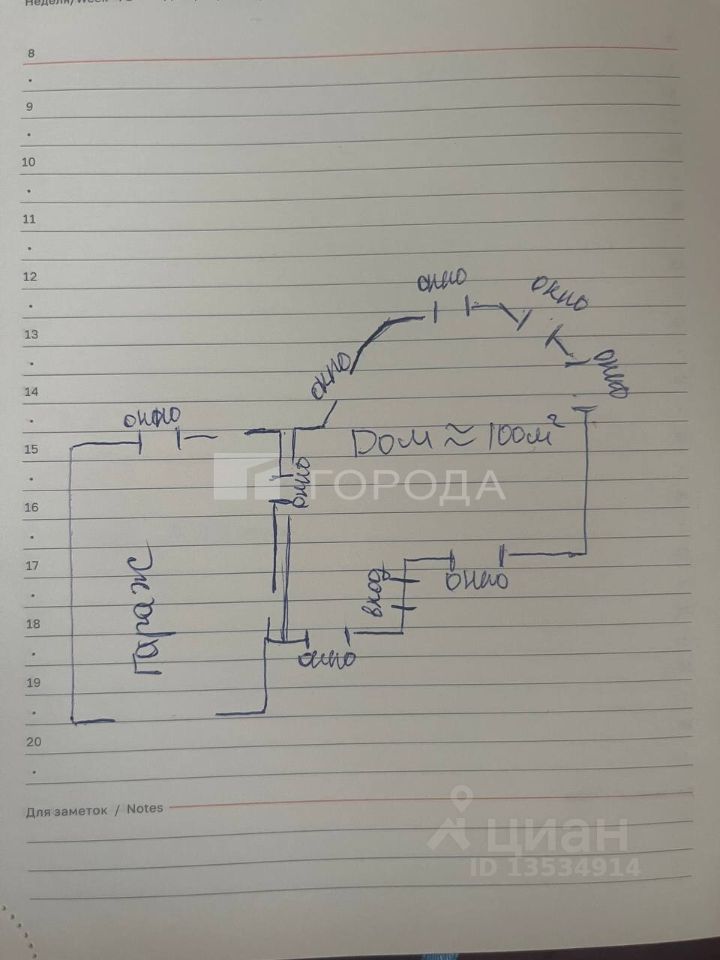 8
9
10
11
12
13
14
15
16
17
18
19
20
окно
окно
окно
окно
окно
Дом ≈ 100м²
окно
ГОРОДА
Гараж
вход
окно
окно
Для заметок / Notes
циан
ID 13534914